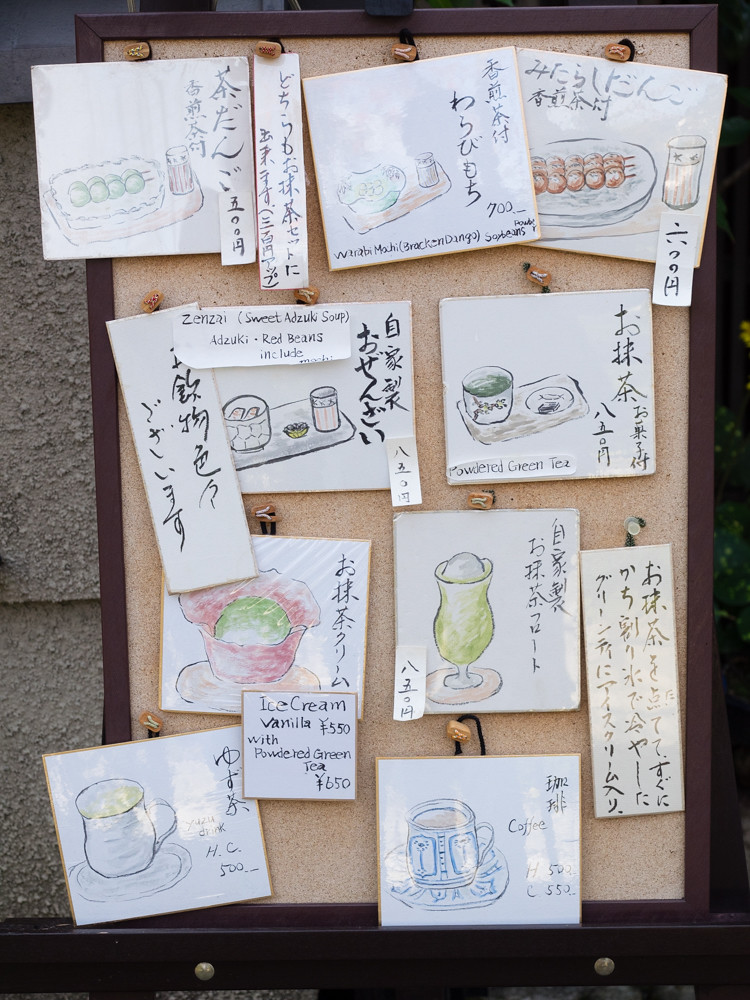 茶だんご
香煎茶付
五〇〇円
どちらもお抹茶セットに
出来ます(三百円アップ)
香煎茶付
わらびもち
700.—
Warabi Mochi (Bracken Dango)
Soybeans
みたらしだんご
香煎茶付
六〇〇円
お飲物色々
ございます
Zenzai (Sweet Adzuki Soup)
Adzuki・Red Beans
include
mochi
自家製
おぜんざい
八五〇円
お抹茶
お菓子付
八五〇円
Powdered Green Tea
お抹茶クリーム
Ice Cream
Vanilla ¥550
with
Powdered Green
Tea
¥650
自家製
お抹茶フロート
八五〇円
お抹茶を点ててすぐに
かち割り氷で冷やした
グリーンティにアイスクリーム入り.
ゆず茶
yuzu
drink
H.C.
500.—
珈琲
Coffee
H 500.
C 550.